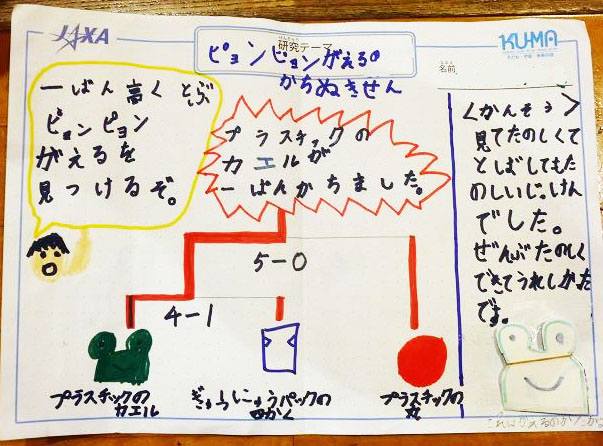 JAXA
研究テーマ
けんきゅう
ピョンピョンがえるの
かちぬきせん
KU-MA
子ども・宇宙・未来の会
名前
一ばん高くとぶ
ピョンピョン
がえるを
見つけるぞ。
プラスチックの
カエルが
一ばんかちました。
5-0
4-1
プラスチックの
カエル
ぎゅうにゅうパックの
プラスチックの
丸
<かんそう>
見てたのしくて
とばしてもた
のしいじっけん
でした。
ぜんぶたのしく
できてうれしかった
です。